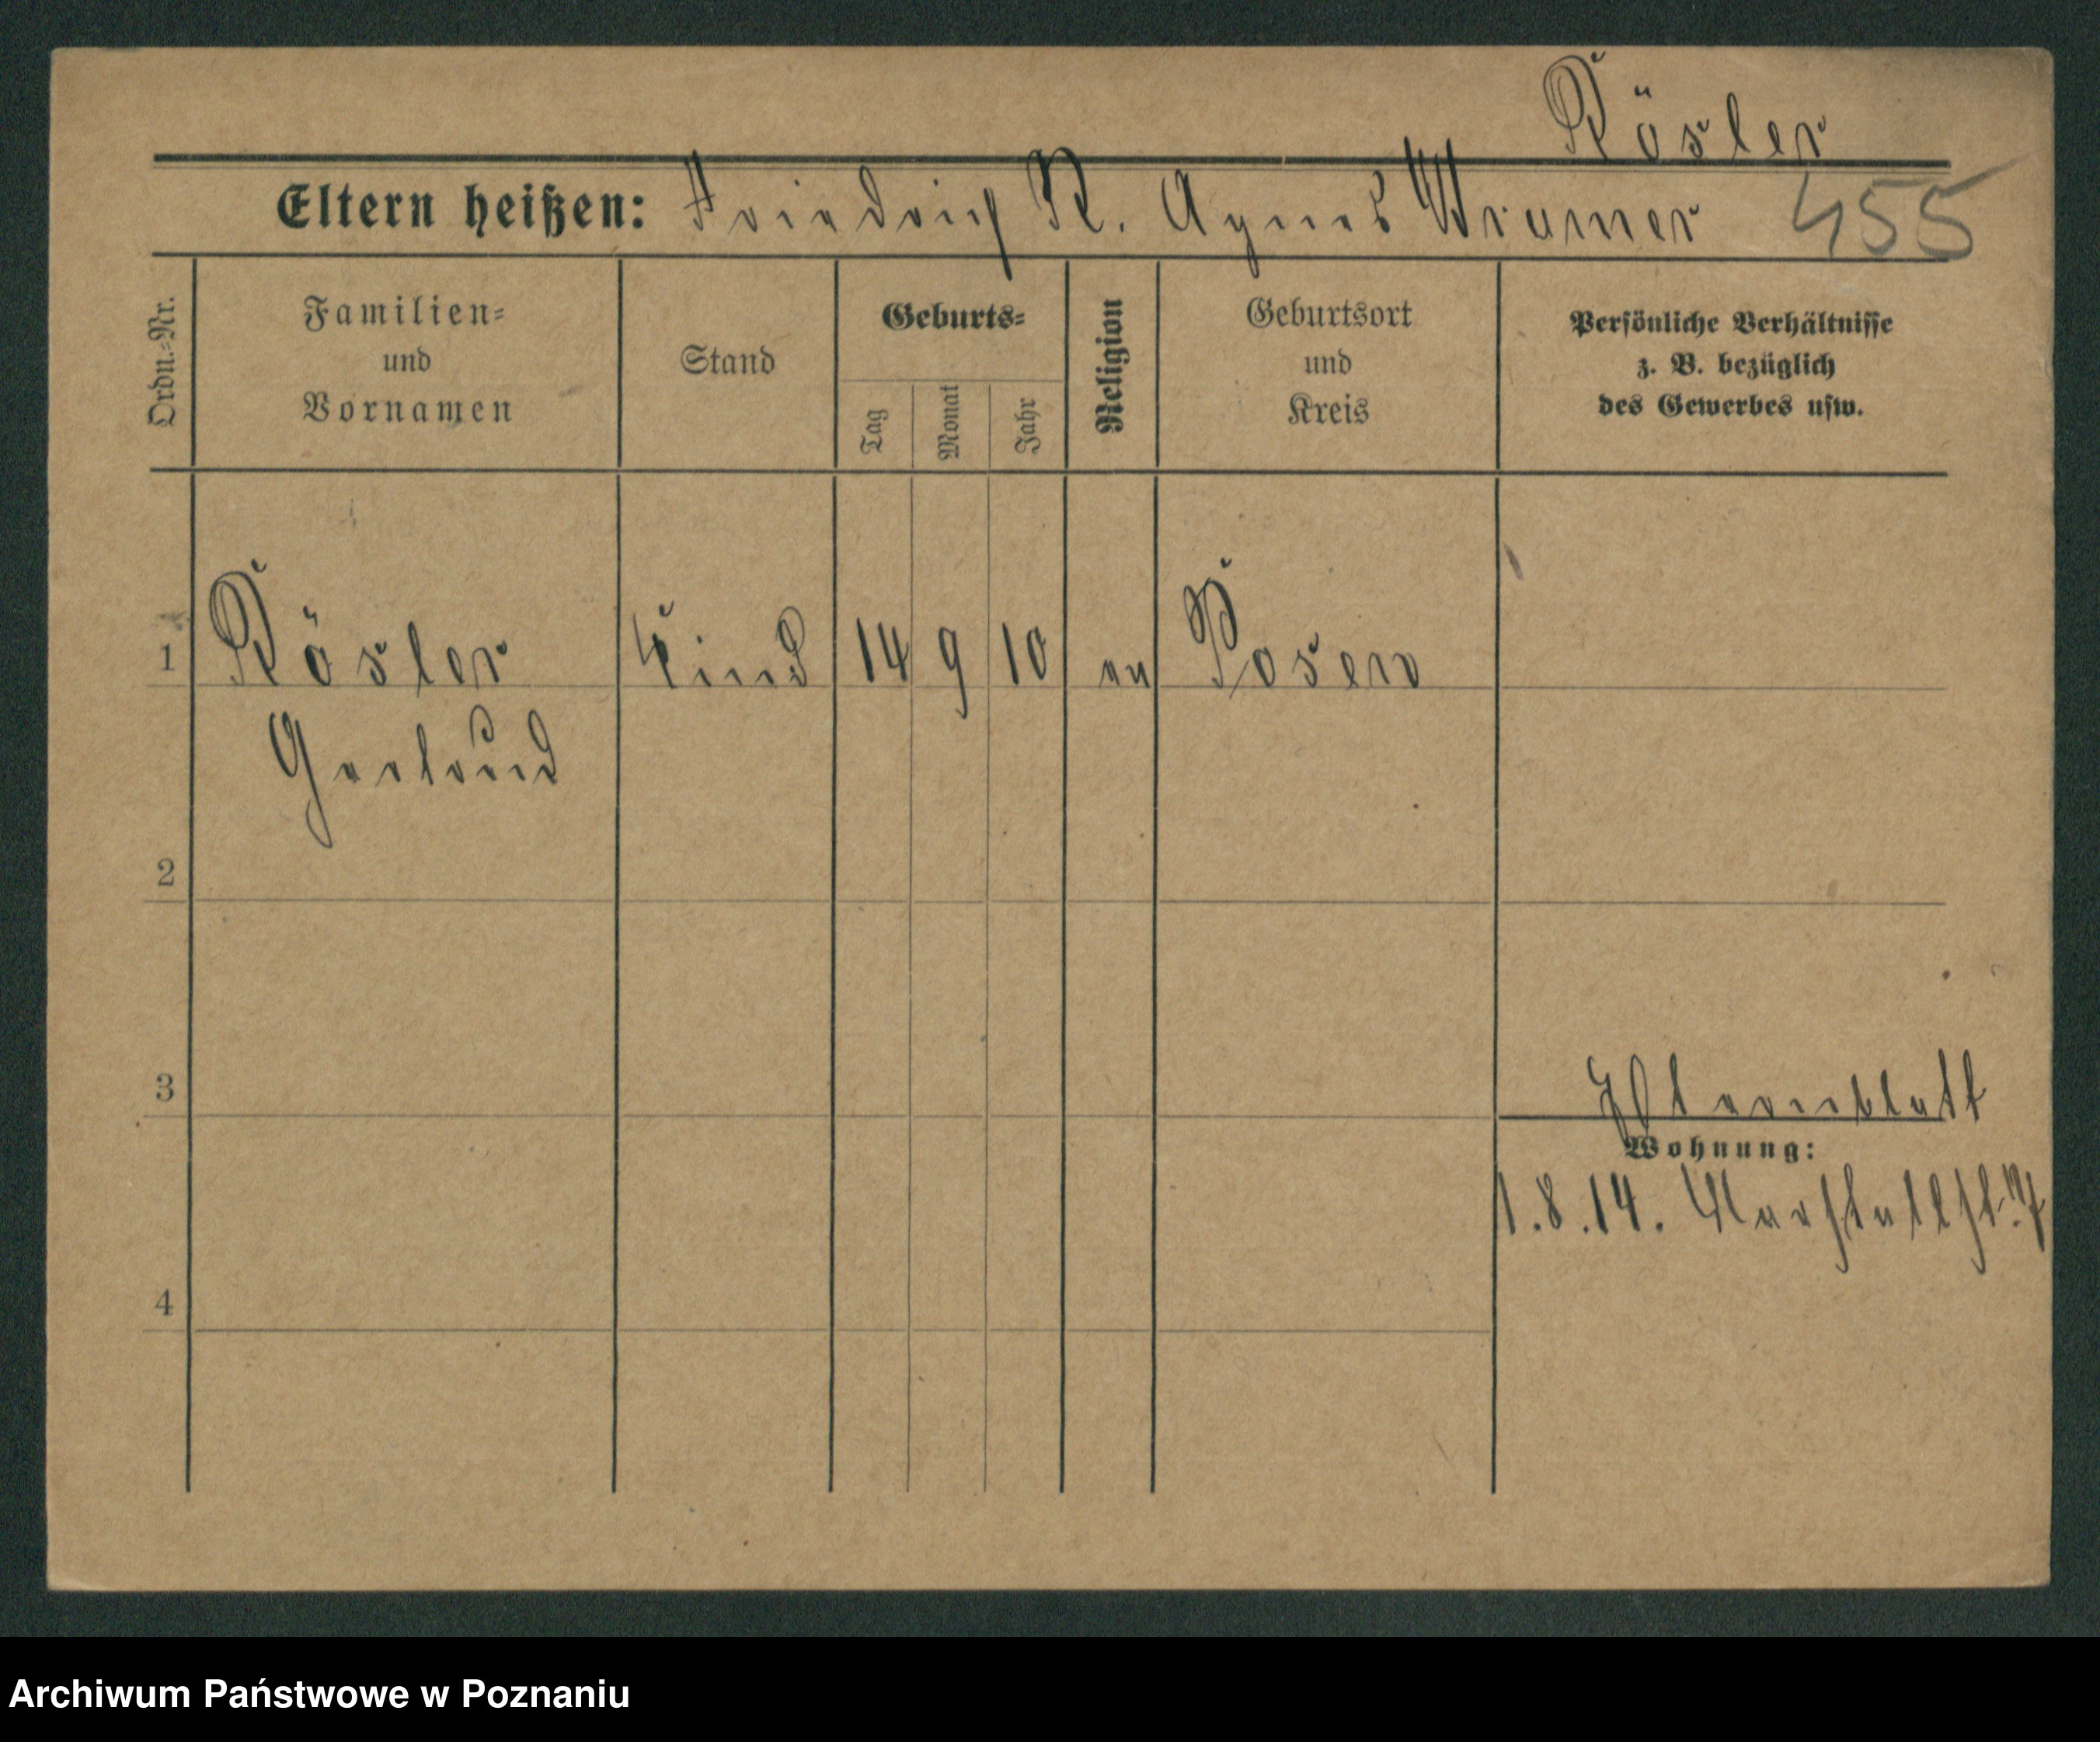 Rösler
Eltern heißen: Friedrich R. Agnes Wramer 455
Ordn.-Nr.
Familien-
und
Vornamen
Stand
Geburts-
Tag
Monat
Jahr
Religion
Geburtsort
und
Kreis
Persönliche Verhältnisse
z. B. bezüglich
des Gewerbes usw.
1 Rösler Kind 14 9 10 ev Posen
2
3
Wohnung:
1.8.14. Marstallst. 7
4
Archiwum Państwowe w Poznaniu